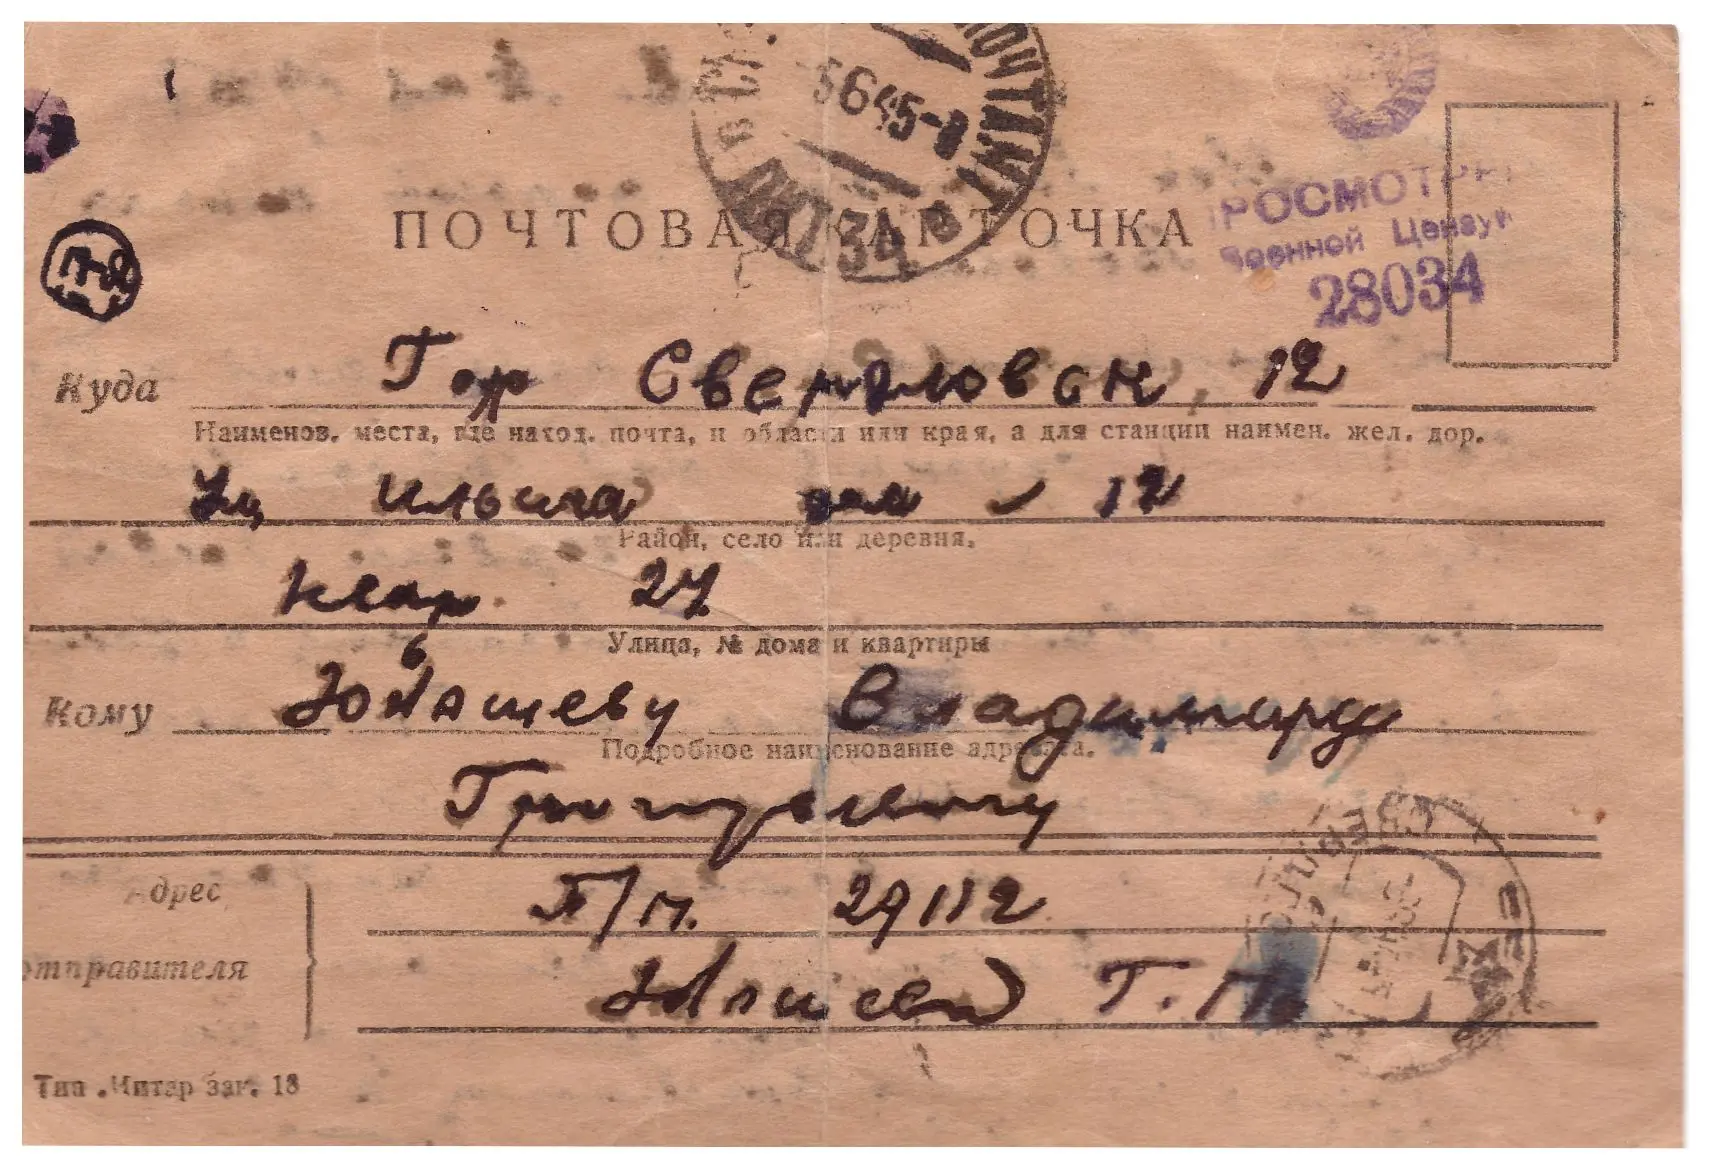 5645-8
ПОЧТАМТ
34
ПОЧТОВАЯ КАРТОЧКА
ПРОСМОТРЕ
Военной Цензу
28034
Куда Гор Свердловск, 12
Наименов. места, где наход. почта, и области или края, а для станции наимен. жел. дор.
Ул Ильича дом 12
Район, село или деревня.
Квар 27
Улица, № дома и квартиры
Кому Юбашеву Владимиру
Подробное наименование адресата.
Григорьевичу
Адрес П/п. 29112
отправителя Г.
Тип. Митар зак. 18